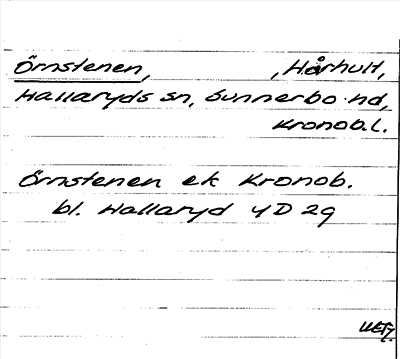 Örnstenen, , Hårhult,
Hallaryds sn, Sunnerbo hd,
Kronob.l.
Örnstenen ek Kronob.
bl. Hallaryd 4 D 2g